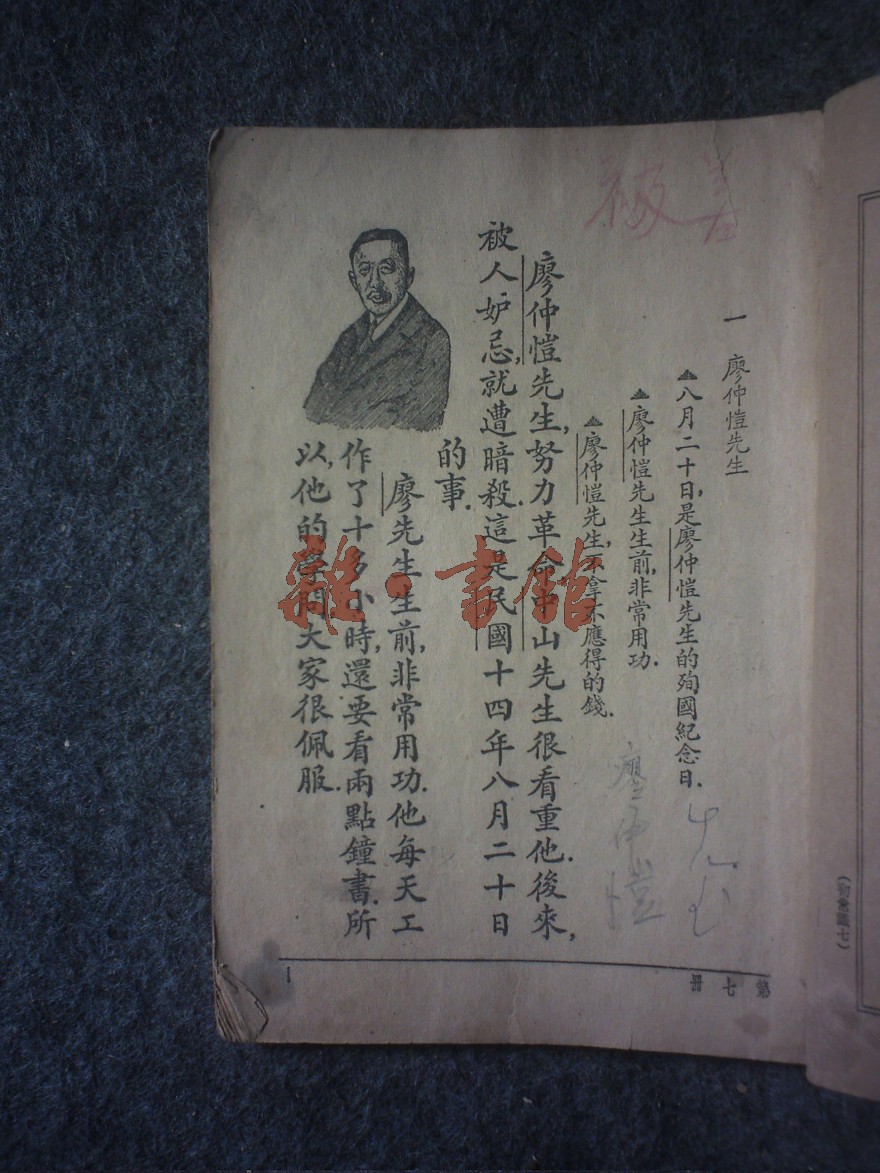 一 廖仲愷先生
八月二十日,是廖仲愷先生的殉國紀念日.
廖仲愷先生生前,非常用功.
廖仲愷先生,不拿不應得的錢.
廖仲愷先生,努力革命,中山先生很看重他.後來,
被人妒忌,就遭暗殺.這是民國十四年八月二十日
的事.
廖先生生前,非常用功.他每天工
作了十多小時,還要看兩點鐘書.所
以,他的學問,大家很佩服.
第七册
1
雜·書館
廖仲愷
被